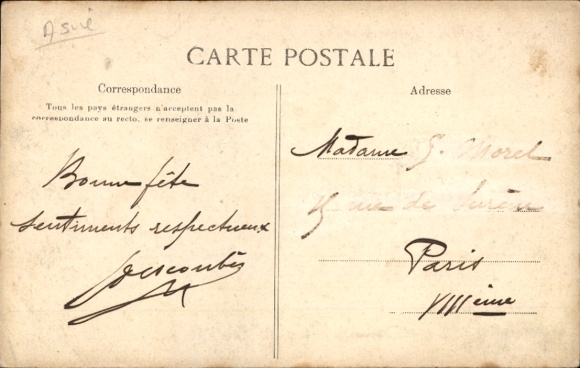 Asie
CARTE POSTALE
Correspondance
Tous les pays étrangers n'acceptent pas la
correspondance au recto, se renseigner à la Poste
Adresse
Bonne fête
sentiments respectueux
Madame G. Morel
rue de Surène
Paris
VIIIeme